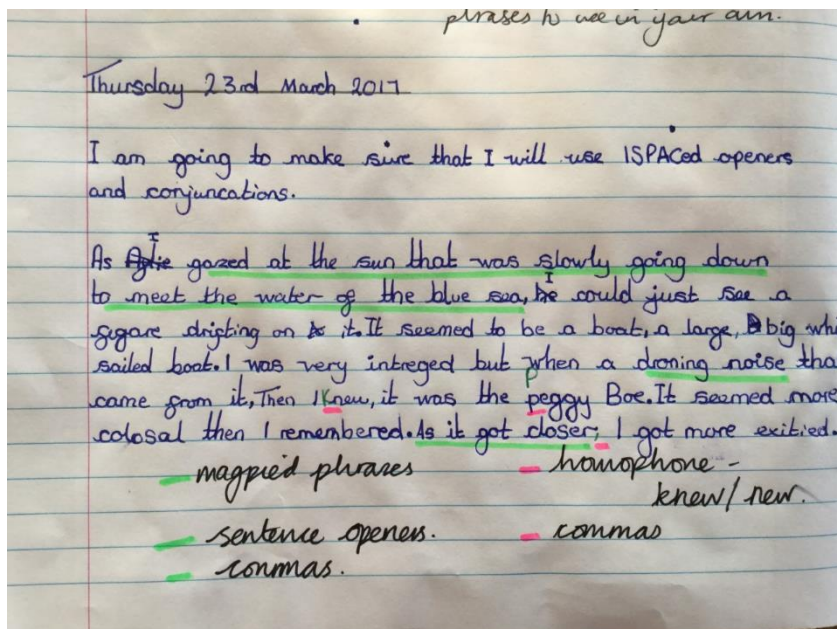 phrases to use in your own.
Thursday 23rd March 2017
I am going to make sure that I will use ISPACed openers
and conjuncations.
As I gazed at the sun that was slowly going down
to meet the water of the blue sea, I could just see a
segare drifting on it. It seemed to be a boat, a large, big whi
sailed boat. I was very intreged but when a droning noise tha
came from it, Then I Knew, it was the peggy Boe. It seemed more
colosal then I remembered. As it got closer, I got more exitied.
magpie'd phrases
homophone -
knew/new.
sentence openers.
commas
commas.